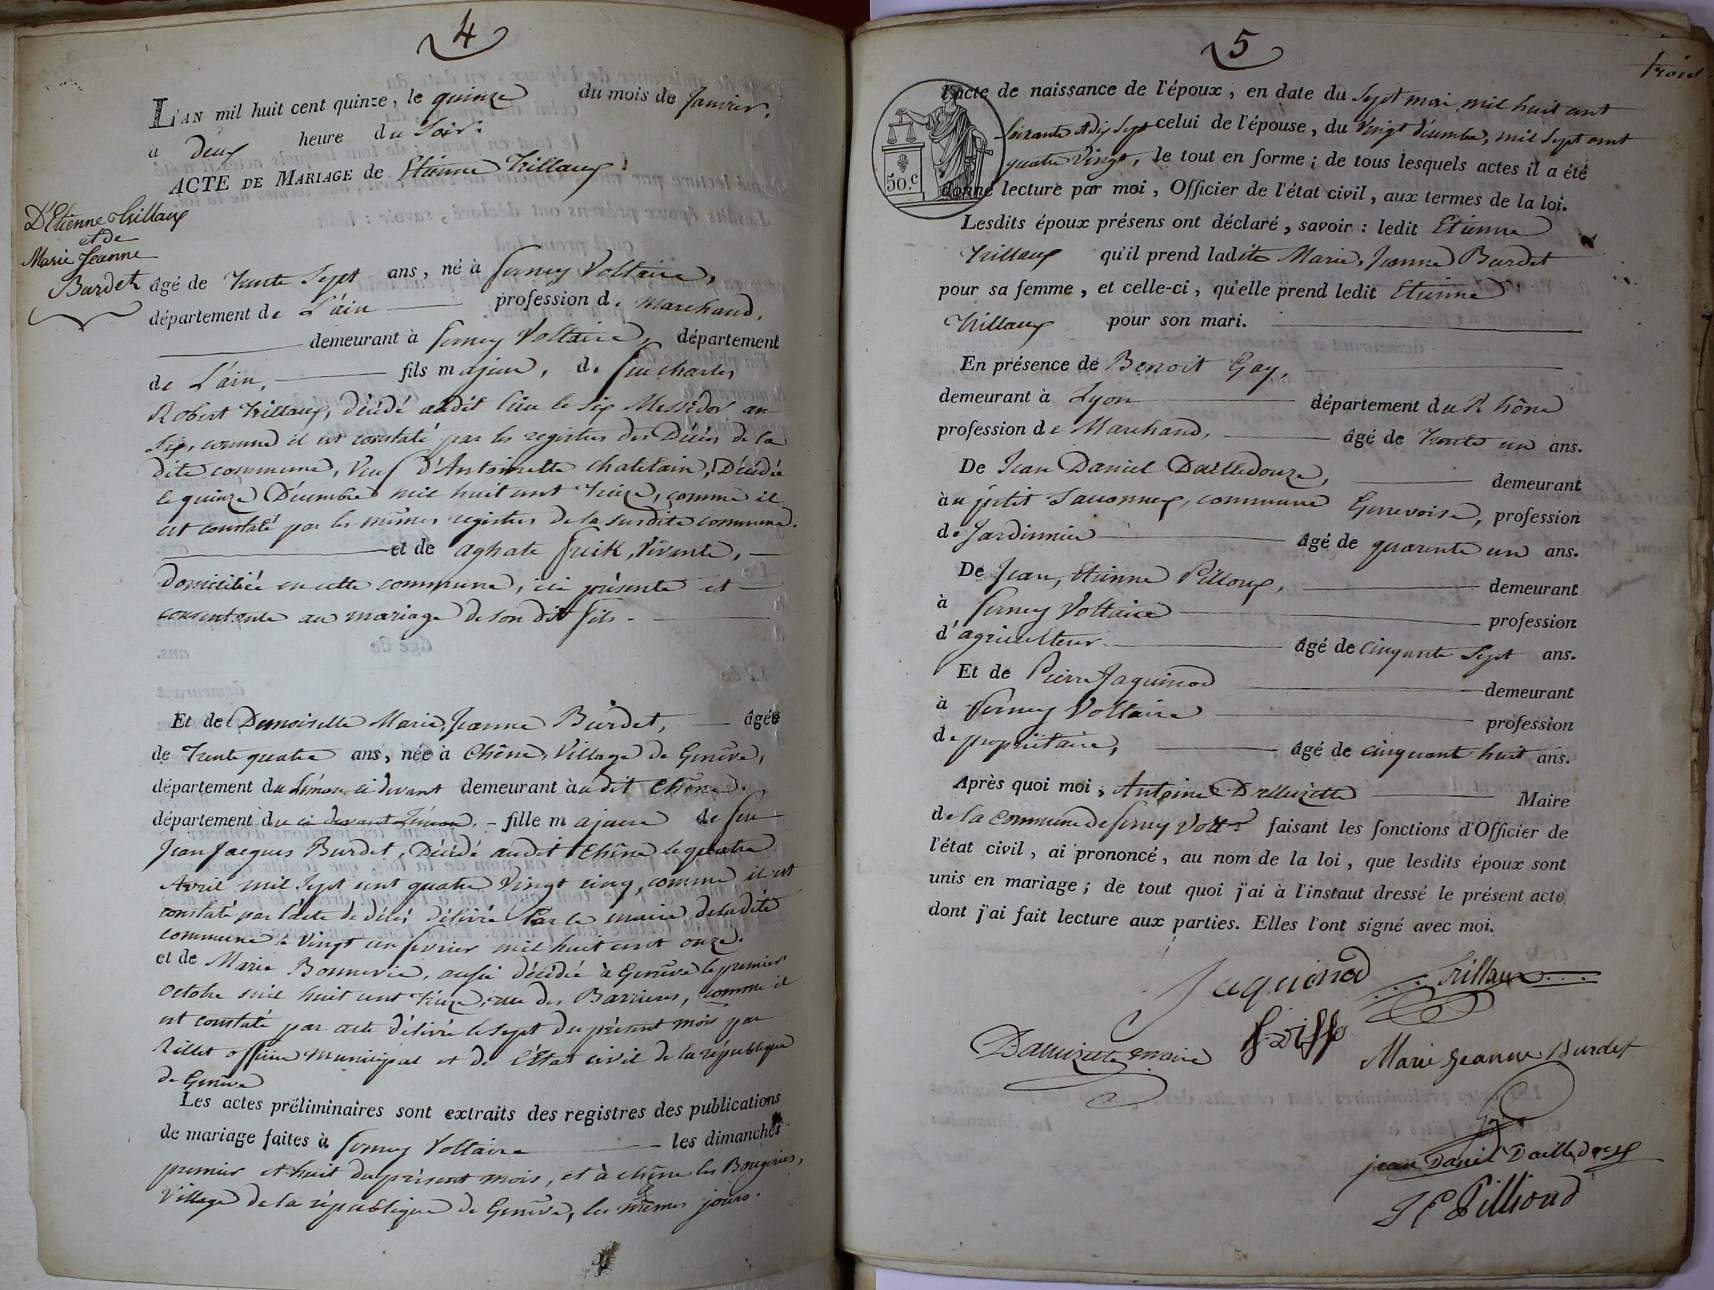 4
L'AN mil huit cent quinze, le quinze du mois de Janvier,
à deux heure du Soir.
ACTE DE MARIAGE de Etienne Trillaux
D'Etienne Trillaux
et de
Marie Jeanne
Burdet
âgé de trente Sept ans, né à ferney Voltaire,
département de L'ain profession de Marchand,
demeurant à ferney Voltaire, département
de L'ain, fils majeur, de feu charles
Robert Trillaux, Décédé audit lieu le Six Messidor an
Six, comme il est constaté par les registres des Décès de la
dite commune, Veuf d'Antoinette chatelain, Décédée
le quinze Décembre mil huit cent treize, comme il
est constaté par les mêmes registres de la susdite commune.
et de aghate frick, Vivante,
domiciliée en cette commune, ici présente et
consentente au mariage de son dit fils.
Et de Demoiselle Marie, Jeanne Burdet, âgée
de trente quatre ans, née à Chêne, Village de Genêve,
département du Léman ci devant demeurant à audit Chêne.
département du ci devant Léman, fille majeure de feu
Jean Jacques Burdet, Décédé audit Chêne le quatre
Avril mil Sept cent quatre Vingt cinq, comme il est
constaté par l'acte de décès délivré Par le maire de ladite
commune le Vingt un fevrier mil huit cent onze.
et de Marie Bonnevie, aussi décédée à Genêve le premier
octobre mil huit cent treize, rue des Barrieres, comme il
est constaté par acte délivré le sept du présent mois par
Rillet officier Municipal et de l'état civil de la république
de Genêve
Les actes préliminaires sont extraits des registres des publications
de mariage faites à ferney Voltaire les dimanches
premier et huit du présent mois, et à chêne les Bougeries,
Village de la république de Genêve, les mêmes jours.
5
trois
50.c
l'acte de naissance de l'époux, en date du Sept mai, mil huit cent
Soixante et dix Sept celui de l'épouse, du Vingt décembre, mil Sept cent
quatre Vingt, le tout en forme; de tous lesquels actes il a été
donné lecture par moi, Officier de l'état civil, aux termes de la loi.
Lesdits époux présens ont déclaré, savoir: ledit Etienne
Trillaux qu'il prend ladite Marie, Jeanne Burdet
pour sa femme, et celle-ci, qu'elle prend ledit Etienne
Trillaux pour son mari.
En présence de Benoit Gay,
demeurant à Lyon département du Rhône
profession de Marchand, âgé de trente un ans.
De Jean Daniel Dailledouze, demeurant
à au petit Saconnex, commune Genevoise, profession
de Jardinnier âgé de quarente un ans.
De Jean, Etienne Pilloux, demeurant
à ferney Voltaire profession
d'agriculteur âgé de cinquante Sept ans.
Et de Pierre Jaquinod demeurant
à ferney Voltaire profession
de propriétaire, âgé de cinquant huit ans.
Après quoi moi, Antoine Maire
de la Commune de ferney Volt.re faisant les fonctions d'Officier de
l'état civil, ai prononcé, au nom de la loi, que lesdits époux sont
unis en mariage; de tout quoi j'ai à l'instant dressé le présent acte
dont j'ai fait lecture aux parties. Elles l'ont signé avec moi.
Jaquinod Trillaux
maire Marie Jeanne Burdet
Gay
jean Daniel Dailledouze
J E Pillioud